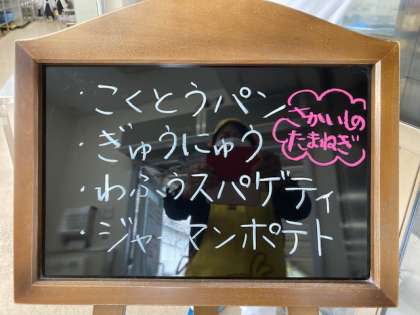 ・こくとうパン
・ぎゅうにゅう
・わふうスパゲティ
・ジャーマンポテト
さかいしの
たまねぎ